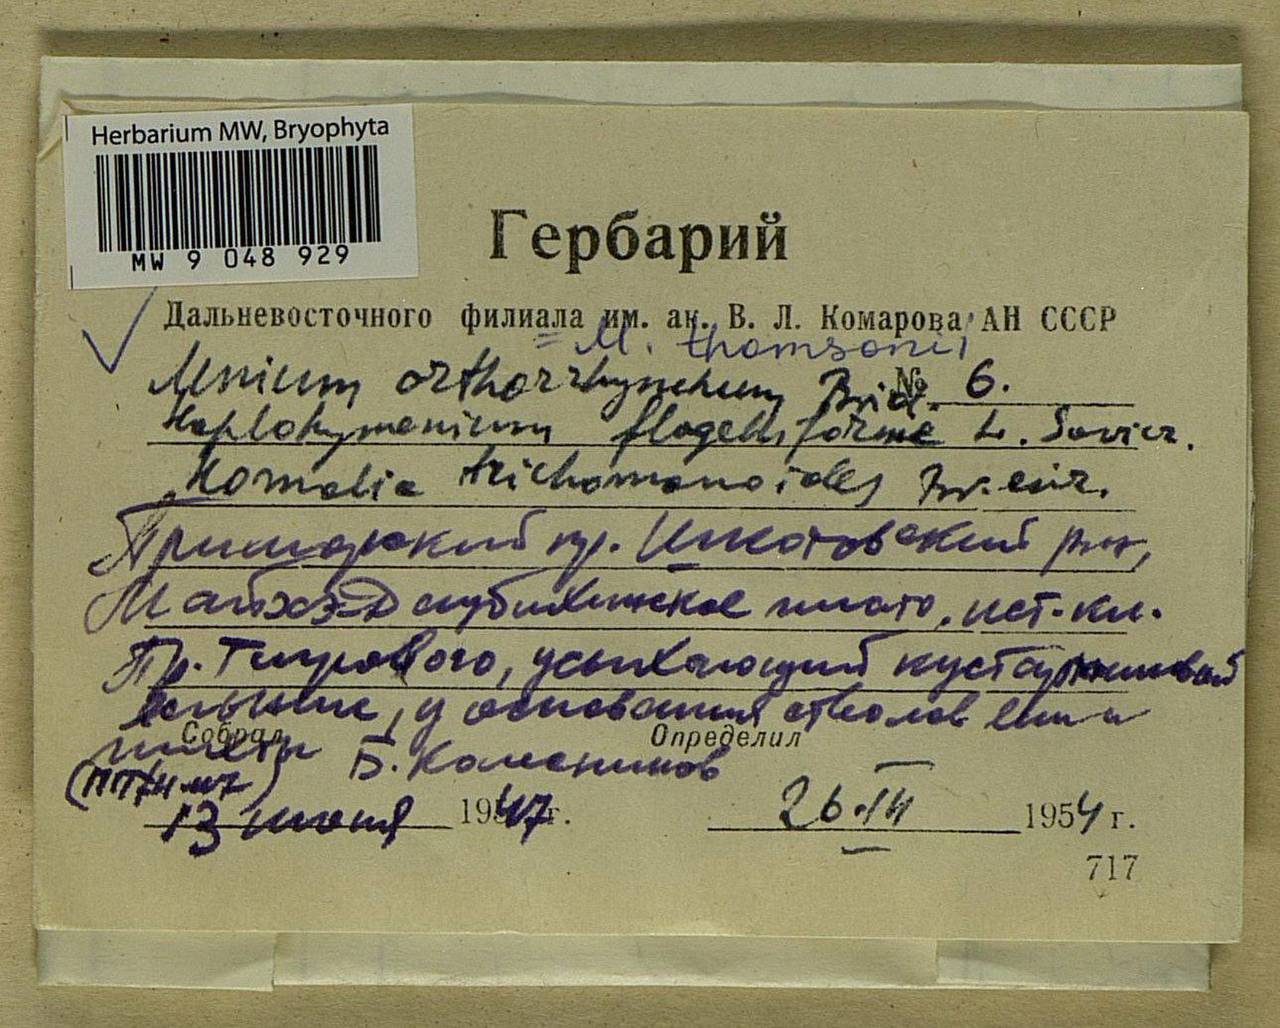 Herbarium MW, Bryophyta
MW 9 048 929
Гербарий
Дальневосточного филиала им. ак. В. Л. Комарова АН СССР
= M. thomsonii
Mnium orthorrhynchum Brid. № 6.
Haplohymenium flagelliforme L. Savicz.
Homalia trichomanoides Br. eur.
Приморский кр. Шкотовский р-н,
Майхэ-Даубихинское плато, ист. кл.
Тигрового, усыхающий кустарниковый
ельник, у основания стволов ели и
пихты
Собрал Б. Колесников Определил
13 июня 1947 г. 26.III 1954 г.
717